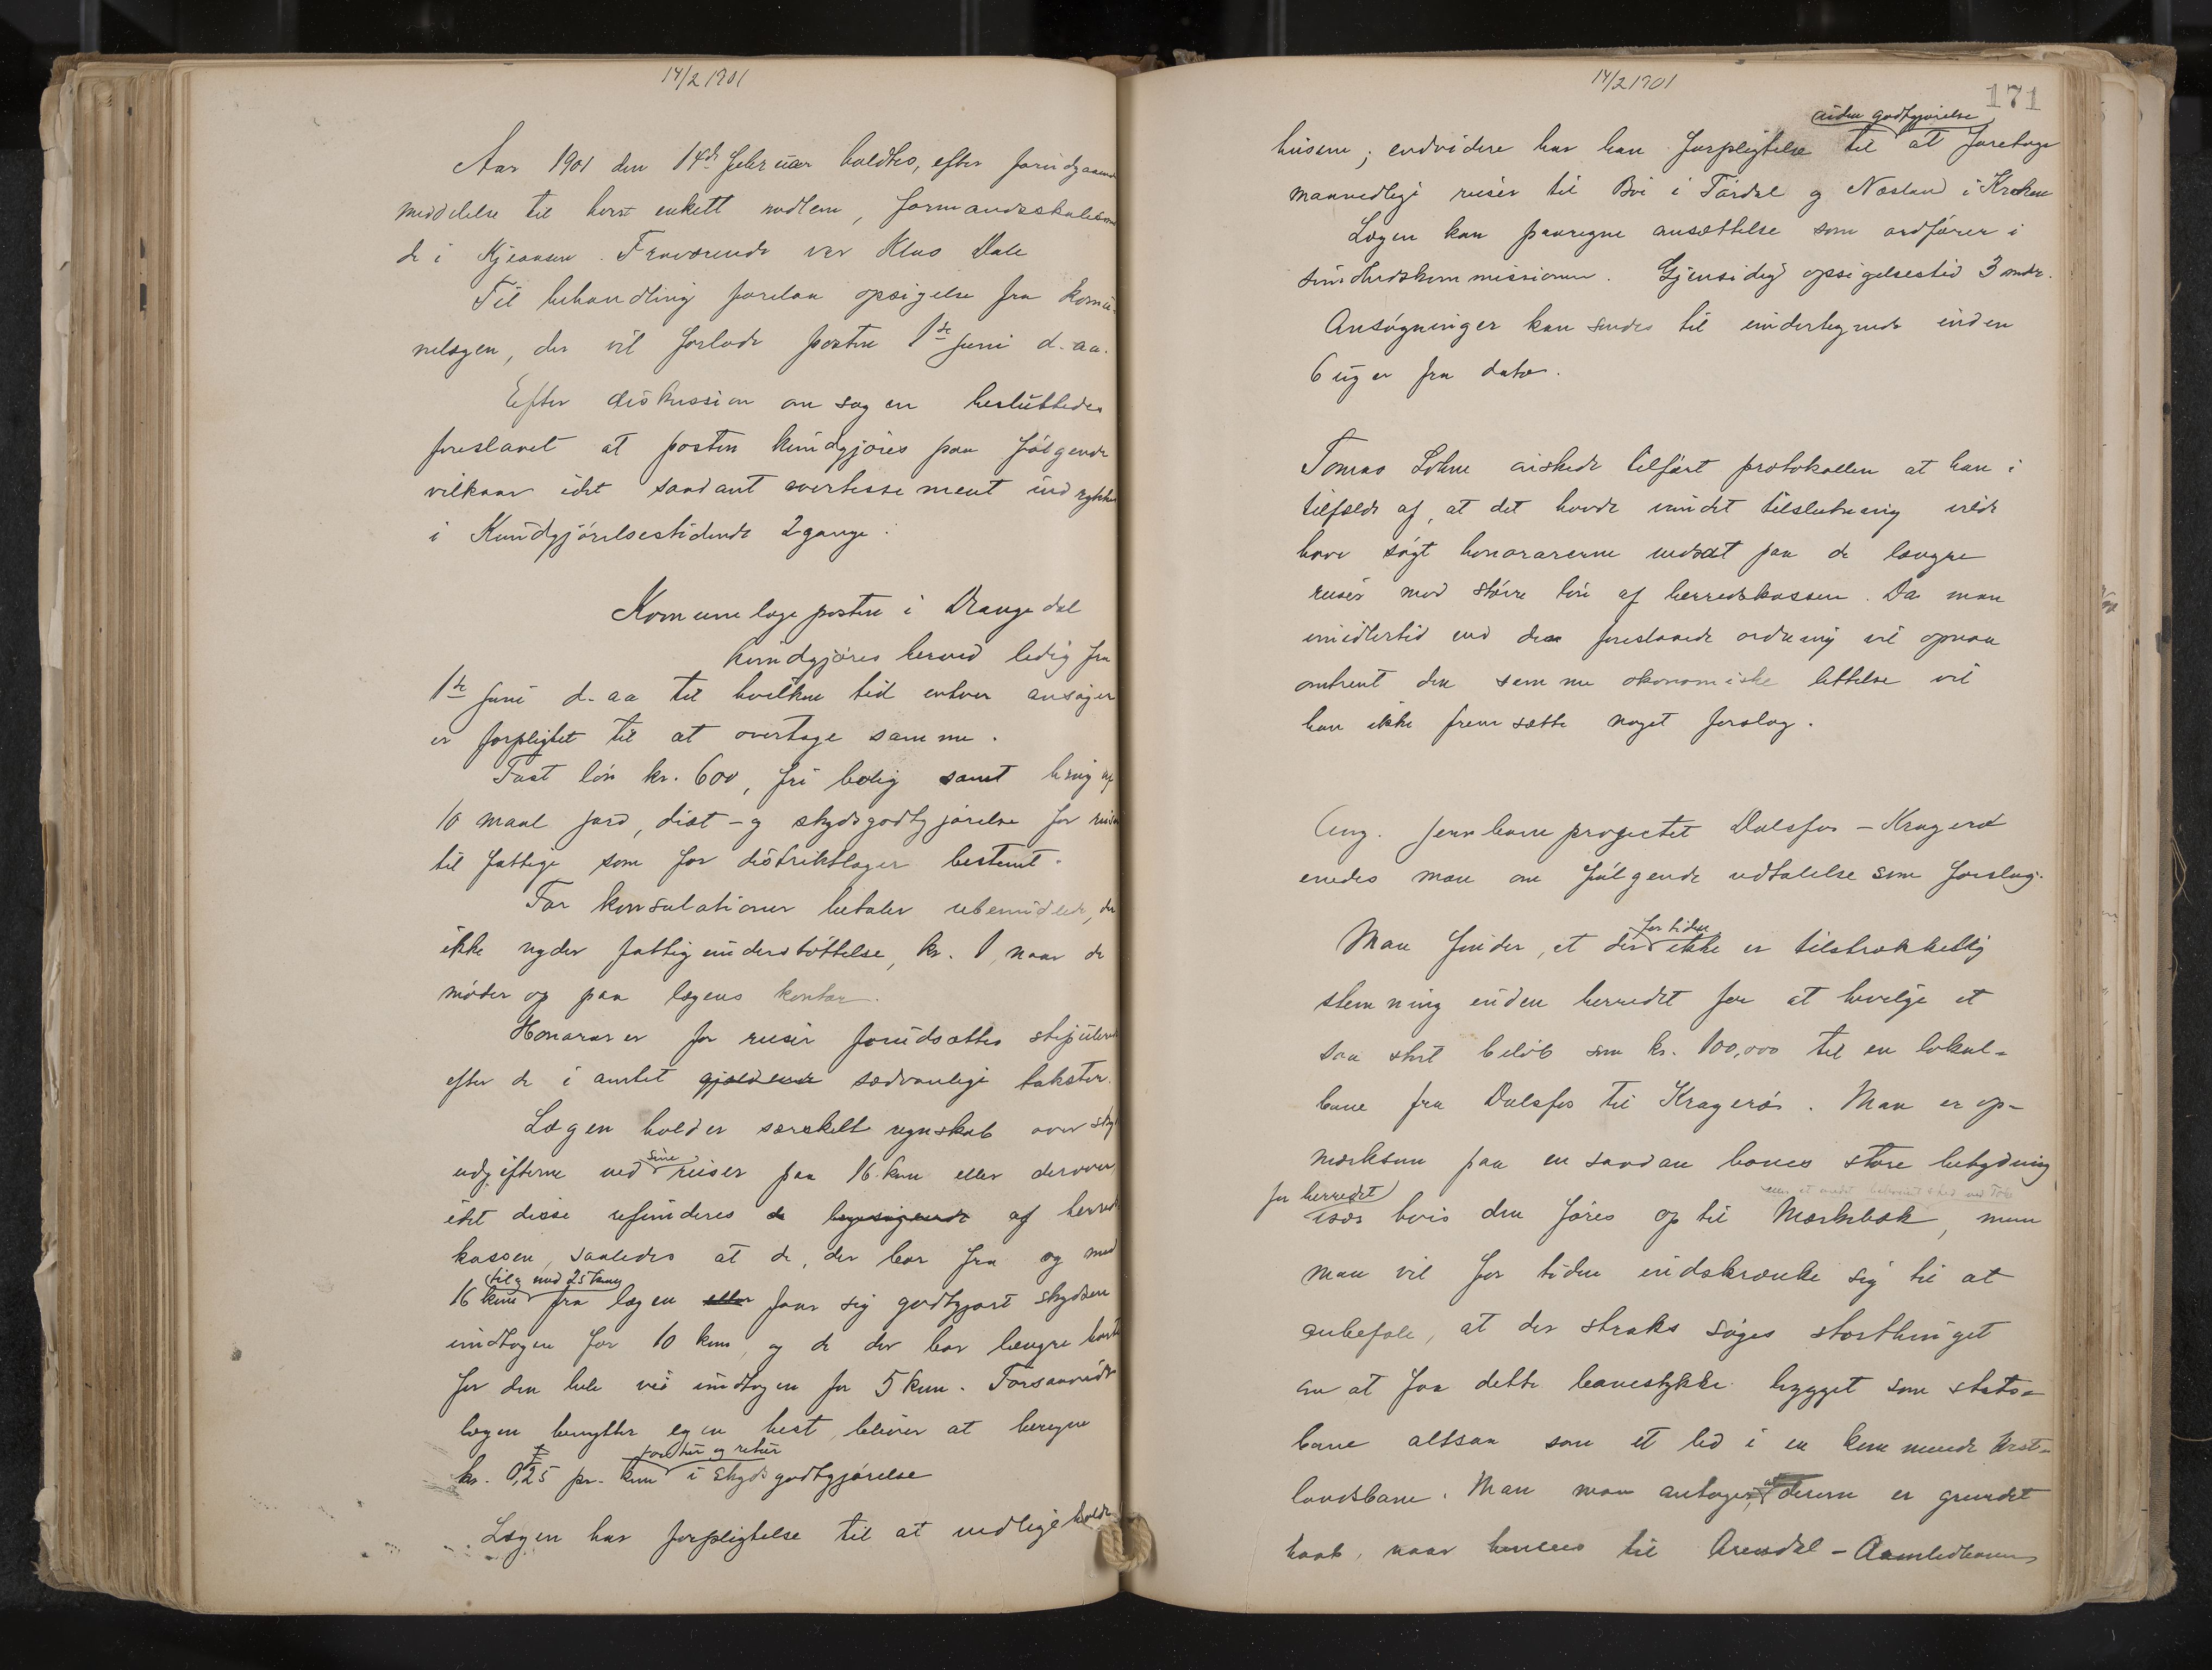 14/2 1901
Aar 1901 den 14de februar holdtes, efter forudgaaende
meddelelse til hvert enkelt medlem, formandsskabsmø
de i Kjeaasen. Fraværende var Klas Dale
Til behandling forelaa opsigelse fra komu
nelægen, der vil forlade posten 1ste juni d. aa.
Efter diskussion om sagen besluttedes
foreslaaet at posten kundgjøres paa følgende
vilkaar idet saadant avertissement indrykkes
i Kundgjørelsestidende 2 gange:
Komunelægeposten i Drangedal
kundgjøres herved ledig fra
1ste juni d. aa til hvilken tid enhver ansøger
er forpligtet til at overtage samme.
Fast løn kr. 600, fri bolig samt brug af
10 maal jord, diæt- og skydsgodtgjørelse for reiser
til fattige som for distriktslæger bestemt.
For konsulationer betaler ubemidlede, der
ikke nyder fattigunderstøttelse, kr. 1, naar de
møder op paa lægens kontor.
Honorarer for reiser forudsættes stipuleret
efter de i amtet gjældende sædvanlige takster.
Lægen holder særskilt regnskab over skyds
udgifterne ved sine reiser paa 16 km eller derover,
idet disse refunderes af herreds
kassen, saaledes at de, der bor fra og med
til og med 25 km
16 km fra lægen eller faar sig godtgjort skydsen
undtagen for 10 km, og de der bor længre borte
for den hele vei undtagen for 5 km. Forsaavidt
lægen benytter egen hest, bliver at beregne
tur og retur
kr. 0,25 pr. km i skydsgodtgjørelse
Lægen har forpligtelse til at vedligeholde
14/2 1901
171
uden godtgjørelse
husene; endvidere har han forpligtelse til at foretage
maanedlige reiser til Bø i Tørdal og Næsland i Kroken
Lægen kan paaregne ansættelse som ordfører i
sundhedskommissionen. Gjensidig opsigelsestid 3 mdr.
Ansøgninger kan sendes til undertegnede inden
6 uger fra dato.
Tomas Lohne ønskede tilført protokollen at han i
tilfælde af, at det havde vundet tilslutning vilde
have søgt honorarerne nedsat paa de længre
reiser mod større løn af herredskassen. Da man
imidlertid ved den foreslaaede ordning vil opnaa
omtrent den samme økonomiske lettelse vil
han ikke fremsætte noget forslag.
Ang. jernbaneprojectet Dalsfos - Kragerø
enedes man om følgende udtalelse som forslag:
for tiden
Man finder, at der ikke er tilstrækkelig
stemning inden herredet for at bevilge et
saa stort beløb som kr. 100,000 til en lokal-
bane fra Dalsfos til Kragerø. Man er op-
mærksom paa en saadan banes store betydning
for herredet
især hvis den føres op til Mærkebæk, men
man vil for tiden indskrænke sig til at
anbefale, at der straks søges storthinget
om at faa dette banestykke bygget som stats-
bane altsaa som et led i en kommende Vest-
landsbane. Man man antager, at derom er grundet
haab, naar henses til Arendal - Aamlidbanens